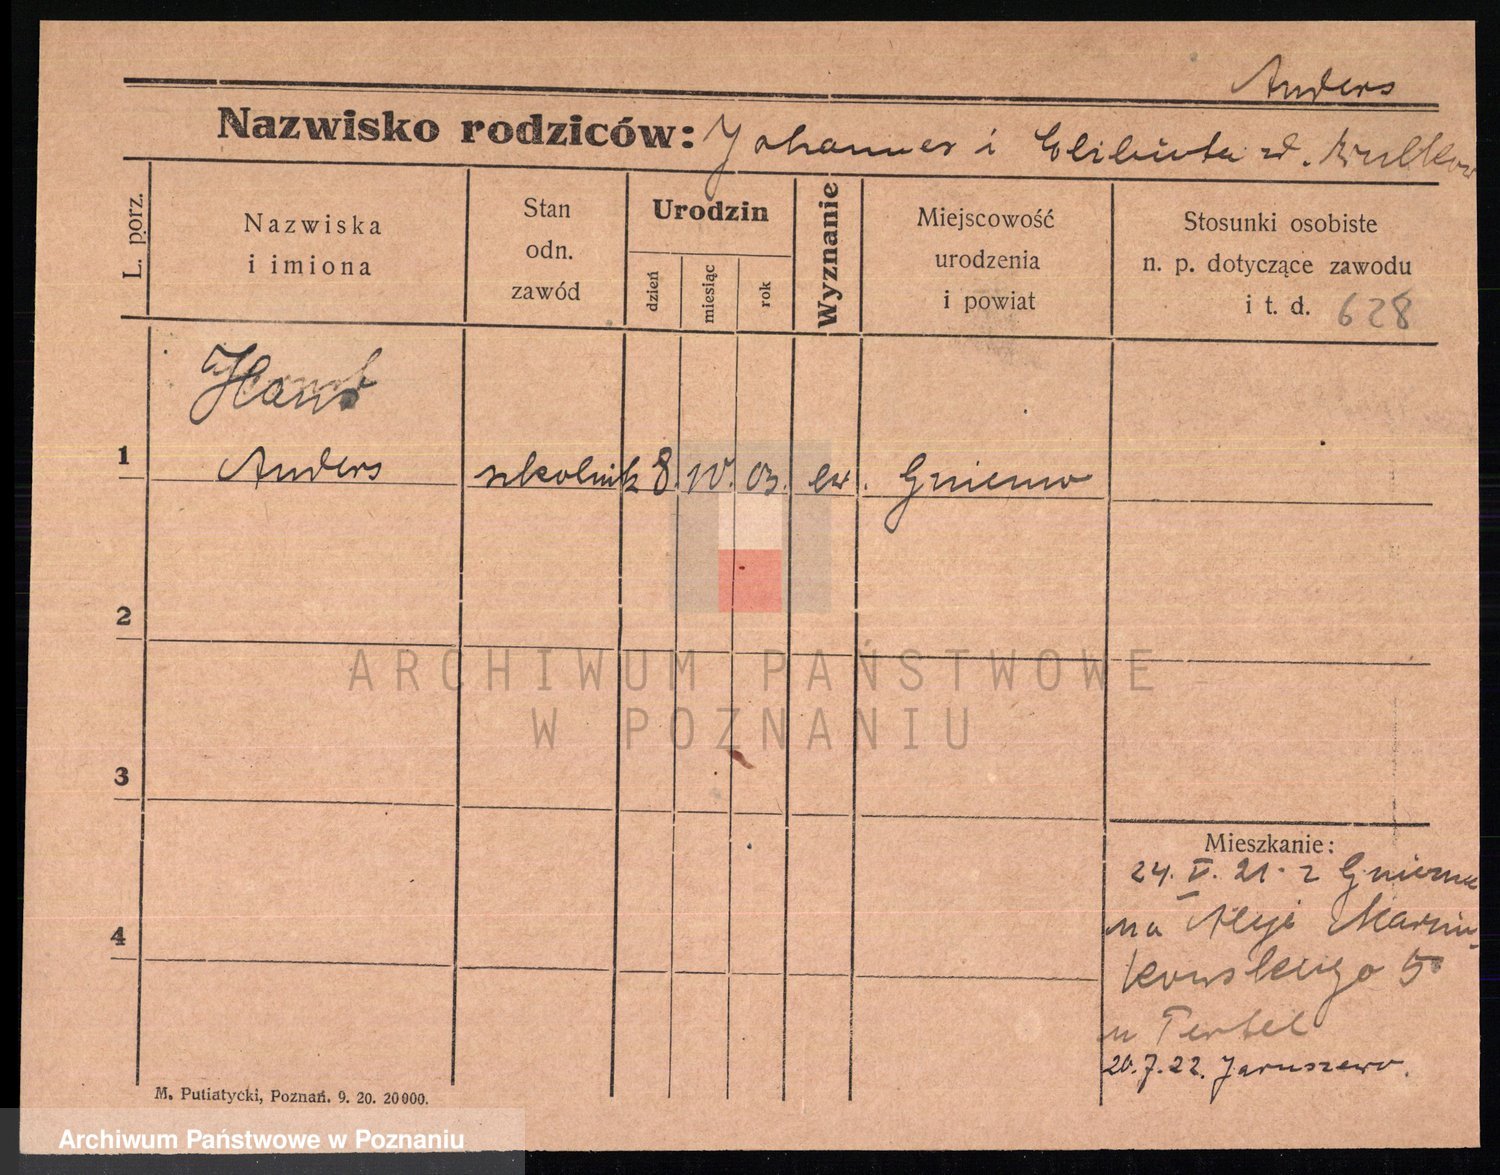 Anders
Nazwisko rodziców: Johannes i Elżbieta zd.
L. porz.
Nazwiska
i imiona
Stan
odn.
zawód
Urodzin
dzień
miesiąc
rok
Wyznanie
Miejscowość
urodzenia
i powiat
Stosunki osobiste
n. p. dotyczące zawodu
i t. d. 628
Hans
1 Anders szkolnik 8. IV. 03. ew. Gniewo
2
ARCHIWUM PAŃSTWOWE
W POZNANIU
3
Mieszkanie:
24. V. 21. z
4
na Aleji Marcin-
kowskiego 5
u Pertel
20.7.22. Jaruszewo.
M. Putiatycki, Poznań. 9. 20. 20000.
Archiwum Państwowe w Poznaniu